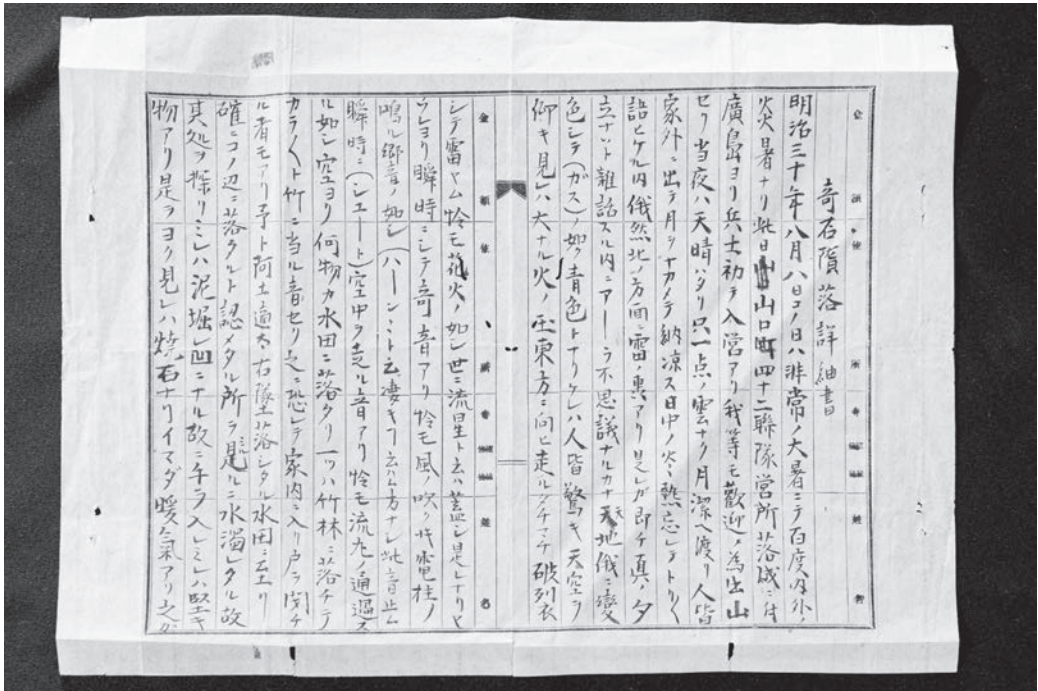 奇石隕落詳細書
明治三十年八月八日コノ日ハ非常ノ大暑ニテ百度内外ノ
炎暑ナリ此日山口町四十二聯隊営所落成ニ付
廣島ヨリ兵士初テ入営アリ我等モ歡迎ノ為出山
セリ当夜ハ天晴ハタリ只一点ノ雲ナク月潔ヘ渡リ人皆
家外ニ出テ月ヲナカメテ納凉ス日中ノ炎熱忘レテトリ〱
語ヒケル内俄然北ノ方面ニ雷ノ轟アリ是レガ即チ真ノ夕
立ナット雑話スル内ニアーラ不思議ナルカナ天地俄ニ變
色シテ(ガス)ノ如ク青色トナリケレハ人皆驚キ天空ヲ
仰キ見レハ大ナル火ノ玉東方ニ向ヒ走ルタチマチ破列衣
シテ雷ヤム恰モ花火ノ如シ世ニ流星ト云ハ蓋シ是レナリヤ
ウレヨリ瞬時ニシテ奇音アリ恰モ風ノ吹ク北電柱ノ
鳴ル響音ノ如シ(ハーン)ミト云凄キ云ム方ナシ此音止
瞬時ニ(シユート)空中ヲ走ル音アリ恰モ流丸ノ通過ス
ル如シ空ヨリ何物カ水田ニ落タリ一ツハ竹林ニ落チテ
カラ〱ト竹ニ当ル音セリ之ニ恐レテ家内ニ入リ戸ヲ閉チ
ル者モアリ予ト阿土適右墜落シタル水田ニ至リ
確ニコノ辺ニ落タルト認メタル所ヲ見ルニ水濁レタル故
其処ヲ探リミレハ泥堀レ凹ニナル故ニ手ヲ入レミレハ堅キ
物アリ是ヲヨク見レハ焼石ナリイマダ暖氣アリ之カ